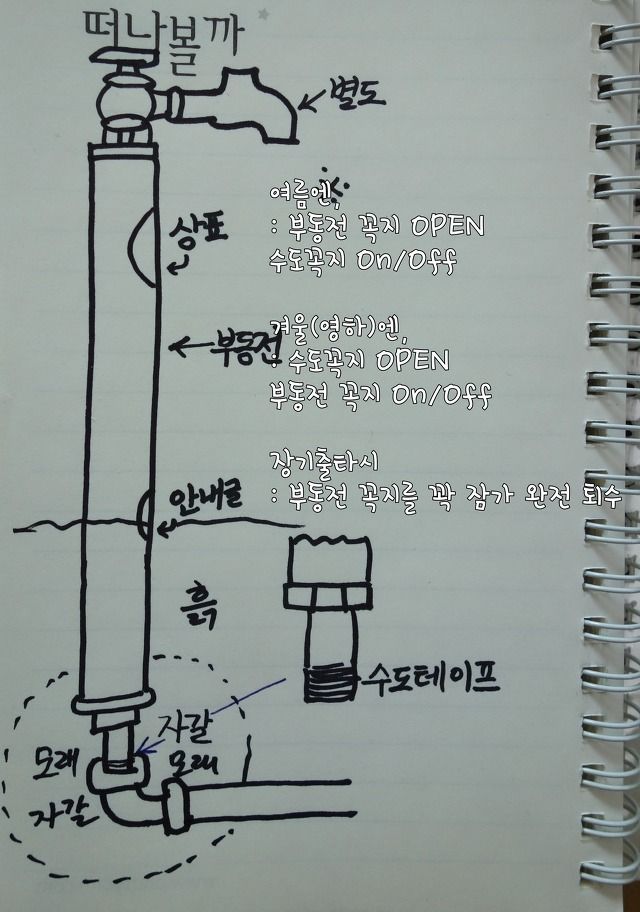 떠나볼까
별도
여름엔,
: 부동전 꼭지 OPEN
수도꼭지 On/Off
상표
겨울(영하)엔,
: 수도꼭지 OPEN
부동전 꼭지 On/Off
부동전
장기출타시
: 부동전 꼭지를 꽉 잠가 완전 퇴수
안내글
흙
수도테이프
자갈
모래
모래
자갈